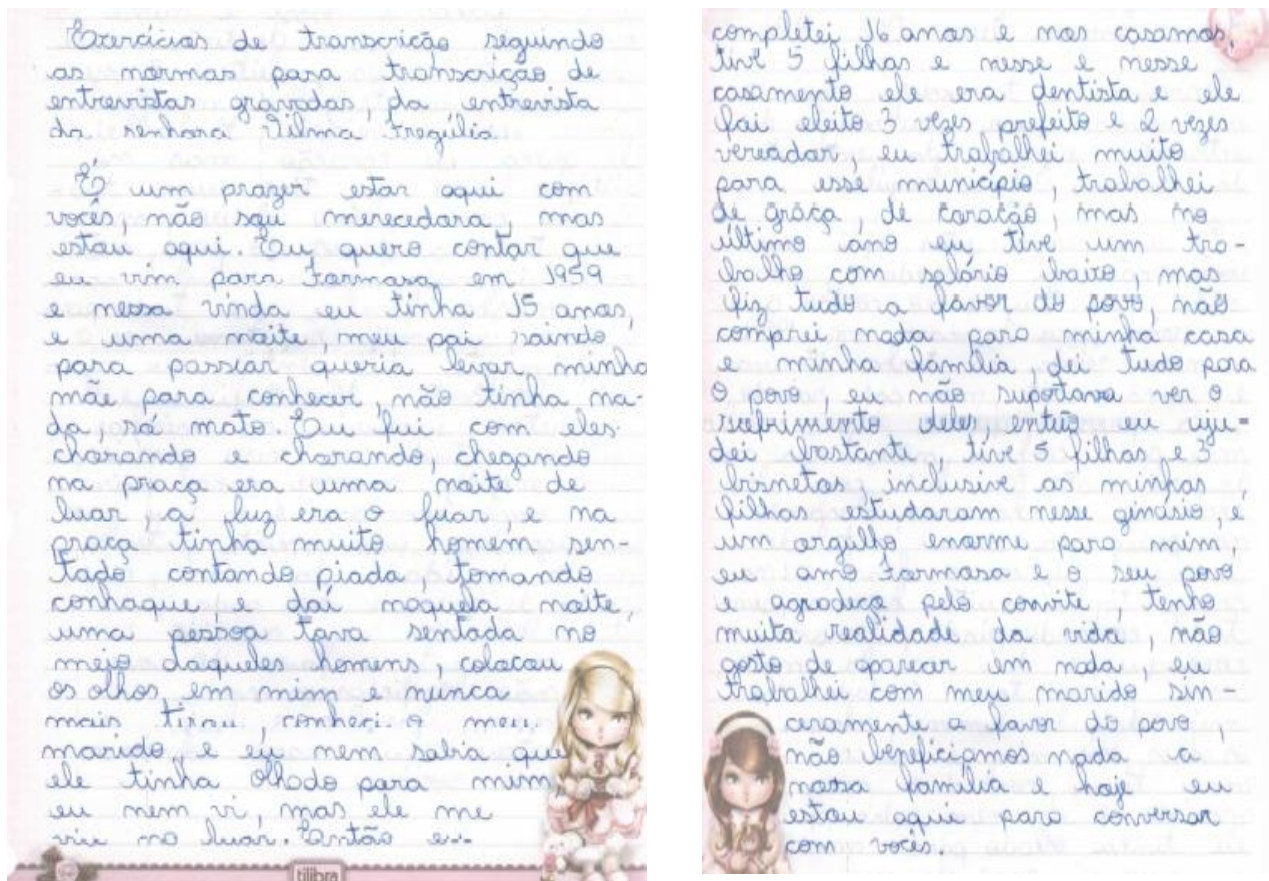 Exercícios de transcrição seguindo
as normas para transcrição de
entrevistas gravadas, da entrevista
da senhora Vilma Fregúlia
É um prazer estar aqui com
vocês, não sou merecedora, mas
estou aqui. Eu quero contar que
eu vim para Formosa em 1959
e nessa vinda eu tinha 15 anos,
e uma noite, meu pai saindo
para passear queria levar minha
mãe para conhecer, não tinha na-
da, só mato. Eu fui com eles
chorando e chorando, chegando
na praça era uma noite de
luar, a luz era o luar, e na
praça tinha muito homem sen-
tado contando piada tomando
conhaque e daí naquela noite,
uma pessoa tava sentada no
meio daqueles homens, colocou
os olhos em mim e nunca
mais tirou, conheci o meu
marido e eu nem sabia que
ele tinha olhado para mim,
eu nem vi, mas ele me
viu no luar. Então eu
tilibra
completei 16 anos e nos casamos,
tive 5 filhas e nesse e nesse
casamento ele era dentista e ele
foi eleito 3 vezes prefeito e 2 vezes
vereador, eu trabalhei muito
para esse município, trabalhei
de graça, de coração, mas no
último ano eu tive um tra-
balho com salário baixo, mas
fiz tudo a favor do povo, não
comprei nada para minha casa
e minha família, dei tudo para
o povo eu não suportava ver o
sofrimento deles, então eu aju-
dei bastante tive 5 filhas e 3
bisnetos, inclusive as minhas
filhas estudaram nesse ginásio, é
um orgulho enorme para mim,
eu amo Formosa e o seu povo
e agradeço pelo convite tenho
muita realidade da vida, não
gosto de aparecer em nada, eu
trabalhei com meu marido sin-
ceramente a favor do povo,
não beneficiamos nada a
nossa família e hoje eu
estou aqui para conversar
com vocês.